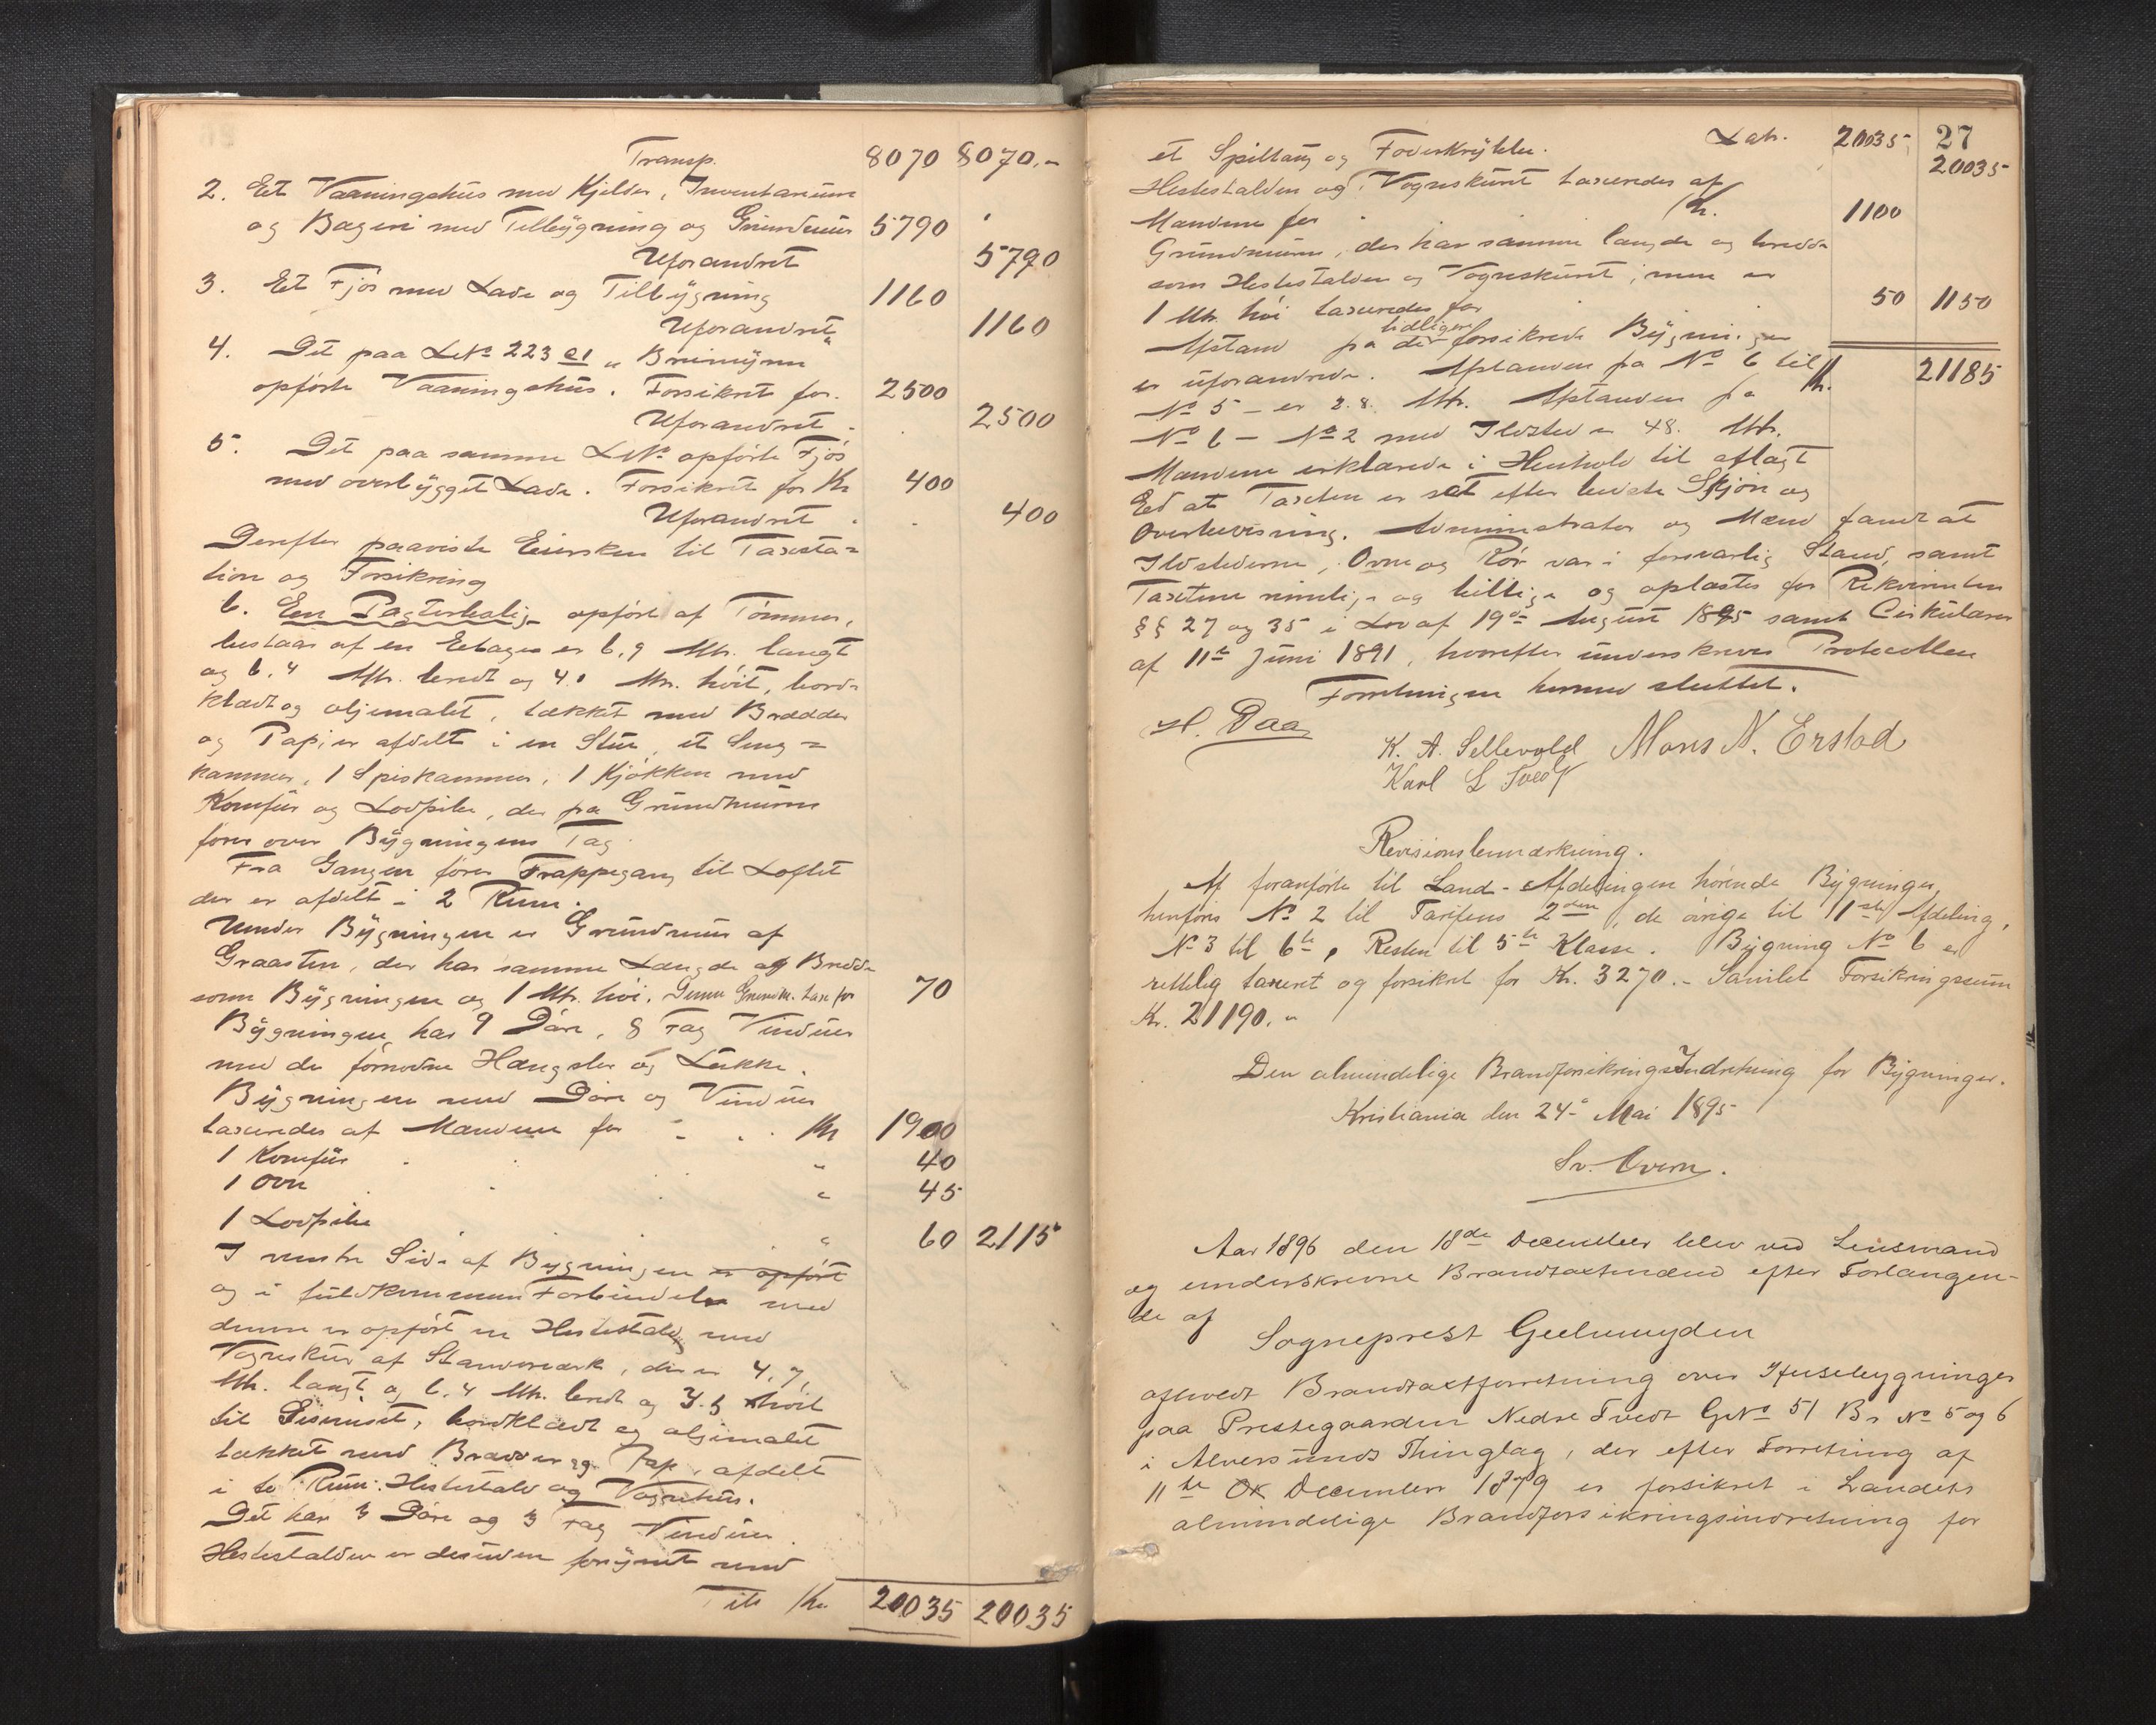 Transp. 8070 8070.-
2. Et Vaaningshus med Kjelder, Inventarium
og Bageri med Tilbygning og Grundmur 5790
Uforandret 5790
3. Et Fjøs med Lade og Tilbygning 1160
Uforandret 1160
4. Det paa LNo 223 a1 "Breimyren
opførte Vaaningshus. Forsikret for. 2500
Uforandret 2500
5. Det paa samme LNo opførte Fjøs
med overbygget Lade. Forsikret for Kr 400
Uforandret 400
Derefter paaviste Eiersken til Taxsta=
tion og Forsikring
6. Een Pagterbolig opført af Tømmer,
bestaar af en Etage er 6,9 Mtr. langt
og 6.4 Mtr. bredt og 4.1 Mtr. høit, bord-
klædt og oljemalet, tækket med Brædder
og Papi, er afdelt i en Stue, et Seng=
kammer, 1 Spiskammer, 1 Kjøkken med
Komfur og Lodpibe, der fra Grundmuren
fører over Bygningens Tag.
Fra Gangen fører Trappegang til Loftet
der er afdelt i 2 Rum.
Under Bygningen er Grundmur af
Graasten, der har samme Længde og Bredde
som Bygningen og 1 Mtr. høi. Denne Grundm. taxe for 70
Bygningen har 9 Døre, 8 Fag Vinduer
med de fornødne Hængsler og Lukke.
Bygningen med Døre og Vinduer
taxeredes af Mændene for Kr 1900
1 Komfur " 40
1 Ovn " 45
1 Lodpibe " 60 2115
I venstre Side af Bygningen er opført
og i fuldkommen Forbindelse med
denne er opført en Hestestald med
Vognskur af Standværk, der er 4,7,
Mtr. langt og 6.4 Mtr. bredt og 3.5 høit
til Gesimset, bordklædt og oljemalet
tækket med Brædder og Pap, afdelt
i to Rum: Hestestald og Vognskur.
Det har 3 Døre og 3 Fag Vinduer
Hestestalden er desuden forsynet med
Til Kr. 20035 20035
27
et Spiltaug og Foderkrybbe. Lab. 20035 20035
Hestestalden og Vognskuret taxeredes af
Mændene for Kr. 1100
Grundmuren, der har samme længde og bredde
som Hestestalden og Vognskuret, men er
1 Mtr. høi taxeredes for 50 1150
Afstand på de tidligere forsikrede Bygninger
er uforandrede. Afstanden fra No 6 til Kr. 21185
No 5 - er 2.8. Mtr. Afstanden fra
No 6 - No 2 med Ildsted er 48. Mtr.
Mændene erklærede i Henhold til aflagt
Ed at Taxten er sat efter bedste Skjøn og
Overbevisning. Administrator og Mænd fandt at
Ildstederne, Ovne og Rør var i forsvarlig Stand, samt
Taxterne rimelige og billige og oplæstes for Rekvirenten
§§ 27 og 35 i Lov af 19de August 1845 samt Cirkulærer
af 11te Juni 1891, hvorefter underskreves Protocollen
Forretningen hermed sluttet.
H. Daa
K. A. Sellevold Mons N. Erstad
Karl L Tvedt
Revisionsbemærkning.
Af foranførte til Land-Afdelingen hørende Bygninger,
henføres No 2 til Tarifens 2den, de øvrige til 1ste Afdeling,
No 3 til 6te, Resten til 5te Klasse. Bygning No 6 er
rettelig taxeret og forsikret for Kr. 3270.- Samlet Forsikringssum
Kr. 21190.-
Den almindelige Brandforsikrings-Indretning for Bygninger.
Kristiania den 24de Mai 1895
Sv. Overn.
Aar 1896 den 18de December blev ved Lensmand
og underskrevne Brandtaxtmænd efter Forlangen-
de af
Sogneprest Geelmuyden
afholdt Brandtaxtforretning over Husebygninger
paa Prestegaarden Nedre Tvedt GNo 51 Br No 5 og 6
i Alversunds Thinglag, der efter Forretning af
11te Ok December 1879 er forsikret i Landets
almindelige Brandforsikringsindretning for